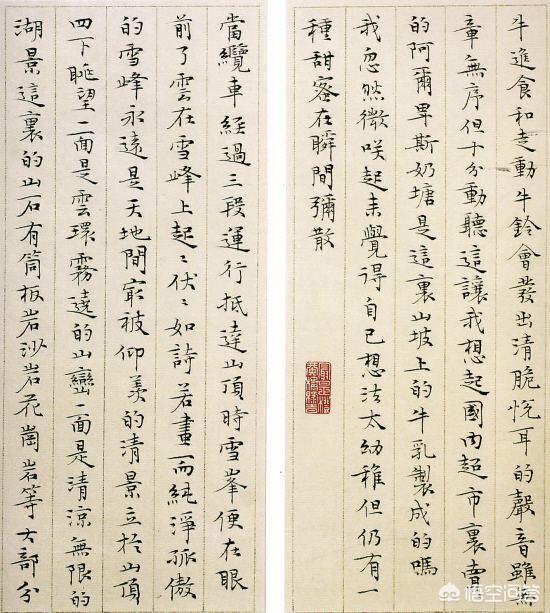 牛進食和走動牛鈴會發出清脆悅耳的聲音雖無
章無序但十分動聽這讓我想起國内超市裏賣
的阿爾卑斯奶塘是這裏山坡上的牛乳製成的嗎
我忽然微咲起来覺得自己想法太幼稚但仍有一
種甜蜜在瞬間彌散
當纜車經過三段運行抵達山頂時雪峯便在眼
前了雲在雪峰上起〻伏〻如詩若畫而純淨孤傲
的雪峰永遠是天地間最被仰羨的清景立於山頂
四下眺望二面是雲環霧遶的山巒一面是清涼無限的
湖景這裏的山石有筒板岩沙岩花崗岩等大部分
悟空问答